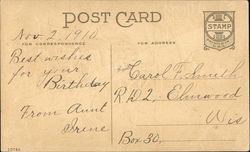 POST CARD
Nov 2, 1910
FOR CORRESPONDENCE
FOR ADDRESS
STAMP
Best wishes
for your
Birthday
From Aunt
Irene
Carol F. Smith
R.D. 2, Elmwood
Wis
Box 30,